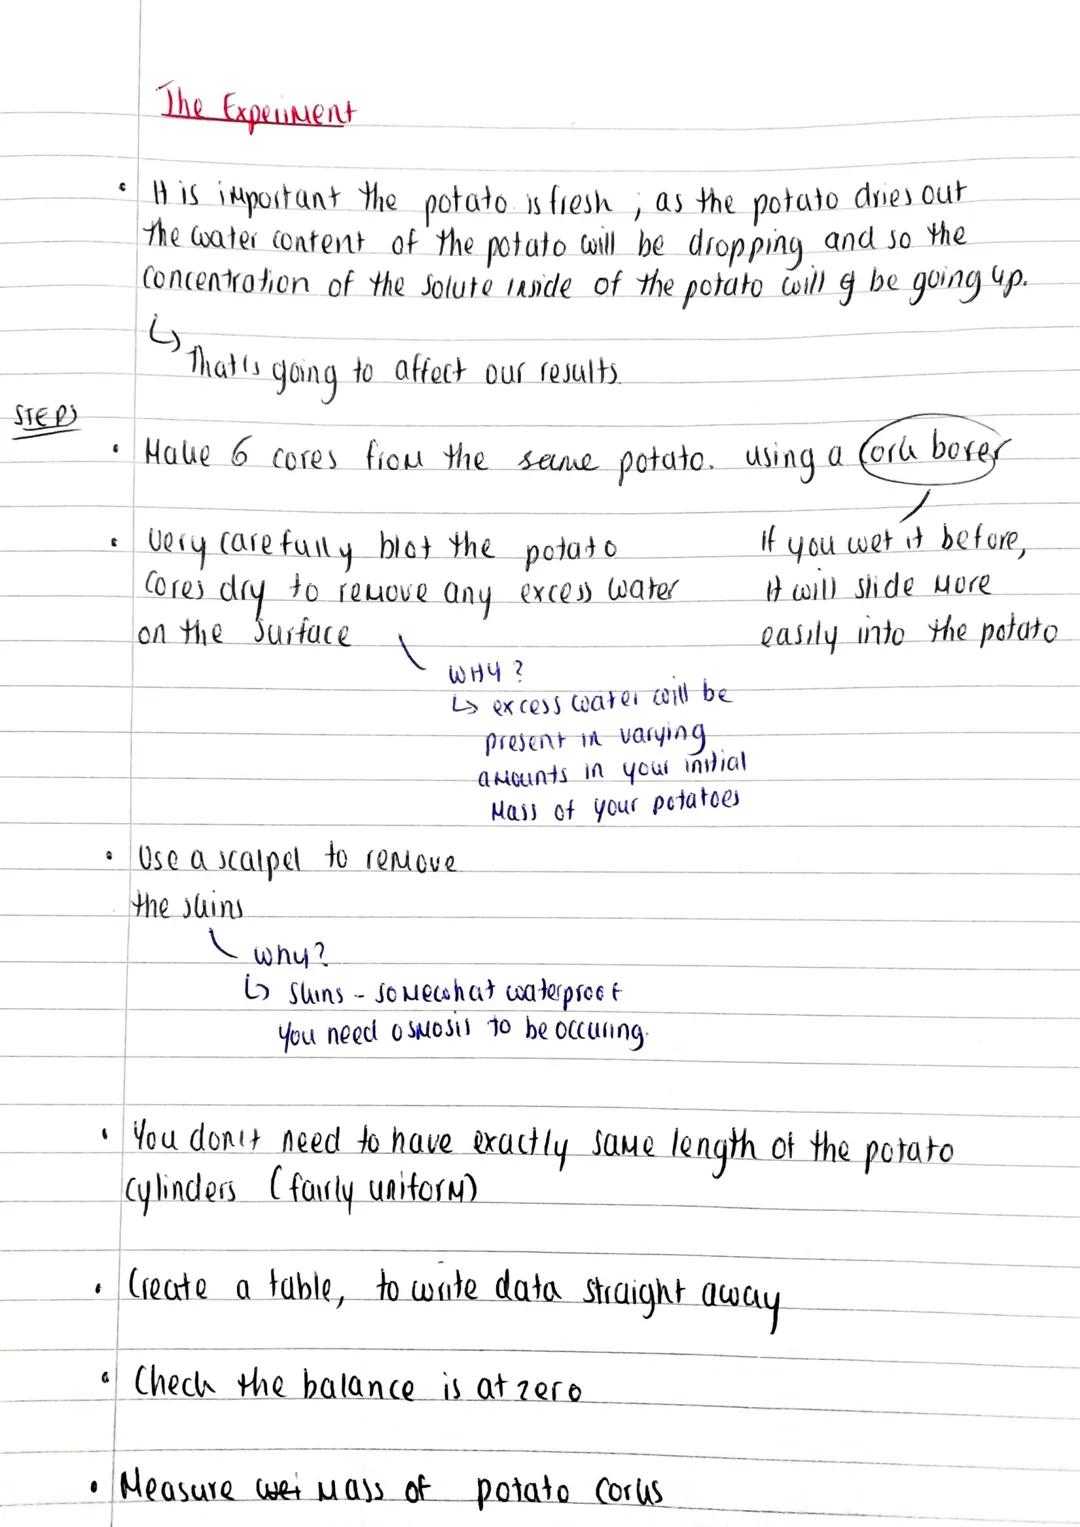 The Experiment
• It is important the potato is fresh ; as the potato dries out
the water content of the potato will be dropping and so the
concentration of the solute inside of the potato will be going up.
↳ That's going to affect our results.
STEPS
• Make 6 cores from the same potato. using a cork borer
If you wet it before,
it will slide more
easily into the potato
• Very carefully blot the potato
cores dry to remove any excess water
on the surface
WHY?
↳ excess water will be
present in varying
amounts in your initial
mass of your potatoes
• Use a scalpel to remove
the skins
why?
↳ skins - somewhat waterproof
you need osmosis to be occuring.
• You don't need to have exactly same length of the potato
cylinders (fairly uniform)
• Create a table, to write data straight away
• Check the balance is at zero
• Measure wei mass of potato corks